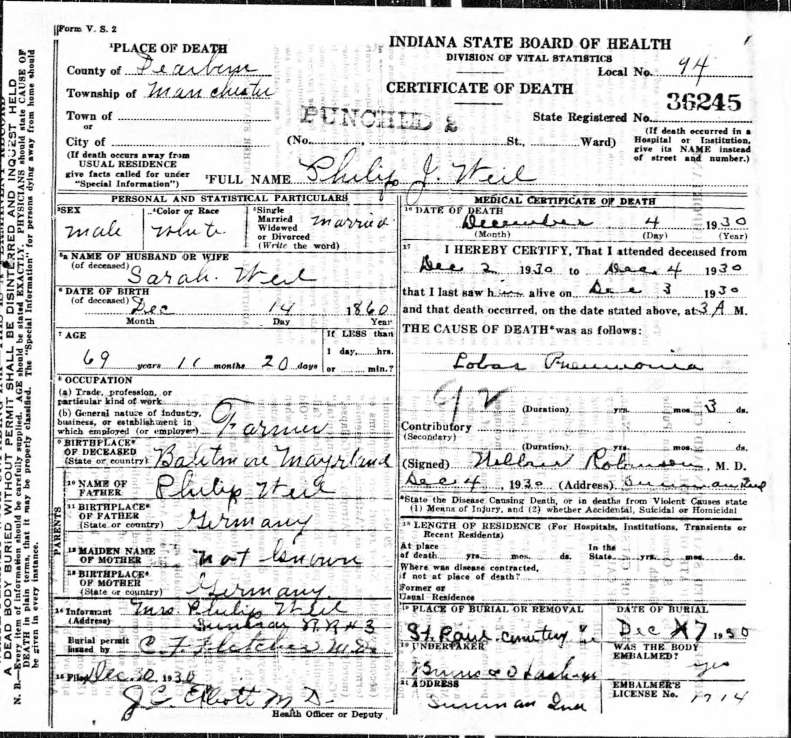 Form V. S. 2
INDIANA STATE BOARD OF HEALTH
DIVISION OF VITAL STATISTICS
Local No. 94
CERTIFICATE OF DEATH
36245
State Registered No.
(If death occurred in a
Hospital or Institution,
give its NAME instead
of street and number.)
¹PLACE OF DEATH
County of Dearborn
Township of Manchester
Town of
or
City of
PUNCHED 2
(No. St., Ward)
(If death occurs away from
USUAL RESIDENCE
give facts called for under
"Special Information")
²FULL NAME Philip J. Weil
PERSONAL AND STATISTICAL PARTICULARS
³SEX
male
⁴Color or Race
White
⁵Single
Married
Widowed
or Divorced
(Write the word)
married
⁵ᵃ NAME OF HUSBAND OR WIFE
(of deceased)
Sarah Weil
⁶DATE OF BIRTH
(of deceased) Dec 14 1860
Month Day Year
⁷AGE
69 years 11 months 20 days
If LESS than
1 day, hrs.
or min.?
⁸OCCUPATION
(a) Trade, profession, or
particular kind of work
(b) General nature of industry,
business, or establishment in
which employed (or employer) Farmer
⁹BIRTHPLACE*
OF DECEASED
(State or country) Baltmore Mayrland
PARENTS
¹⁰NAME OF
FATHER Philip Weil
¹¹BIRTHPLACE*
OF FATHER
(State or country) Germany
¹²MAIDEN NAME
OF MOTHER not known
¹³BIRTHPLACE*
OF MOTHER
(State or country) Germany
¹⁴Informant Mrs. Philip Weil
(Address) R R #3
Burial permit
issued by C. F. Fletcher M.D.
¹⁵Filed Dec 20 1930
J C Elliott M D.
Health Officer or Deputy
MEDICAL CERTIFICATE OF DEATH
¹⁶DATE OF DEATH
December 4 1930
(Month) (Day) (Year)
¹⁷ I HEREBY CERTIFY, That I attended deceased from
Dec 2 1930 to Dec. 4 1930
that I last saw him alive on Dec 3 1930
and that death occurred, on the date stated above, at 3 A M.
THE CAUSE OF DEATH*was as follows:
Lobar Pneumonia
(Duration) yrs. mos. 3 ds.
Contributory
(Secondary)
(Duration) yrs. mos. ds.
(Signed) Robinson, M. D.
Dec 4, 1930 (Address)
*State the Disease Causing Death, or in deaths from Violent Causes state
(1) Means of Injury, and (2) whether Accidental, Suicidal or Homicidal
¹⁸LENGTH OF RESIDENCE (For Hospitals, Institutions, Transients or
Recent Residents)
At place
of death yrs. mos. ds.
In the
State yrs. mos. ds.
Where was disease contracted,
if not at place of death?
Former or
Usual Residence
¹⁹PLACE OF BURIAL OR REMOVAL
St. Paul cemetery
DATE OF BURIAL
Dec 7 1930
²⁰UNDERTAKER
WAS THE BODY
EMBALMED?
yes
²¹ADDRESS
Sunman Ind
EMBALMER'S
LICENSE No. 1714
A DEAD BODY BURIED WITHOUT PERMIT SHALL BE DISINTERRED AND INQUEST HELD
N. B.—Every item of information should be carefully supplied. AGE should be stated EXACTLY. PHYSICIANS should state CAUSE OF
DEATH in plain terms, that it may be properly classified. The "Special Information" for persons dying away from home should
be given in every instance.